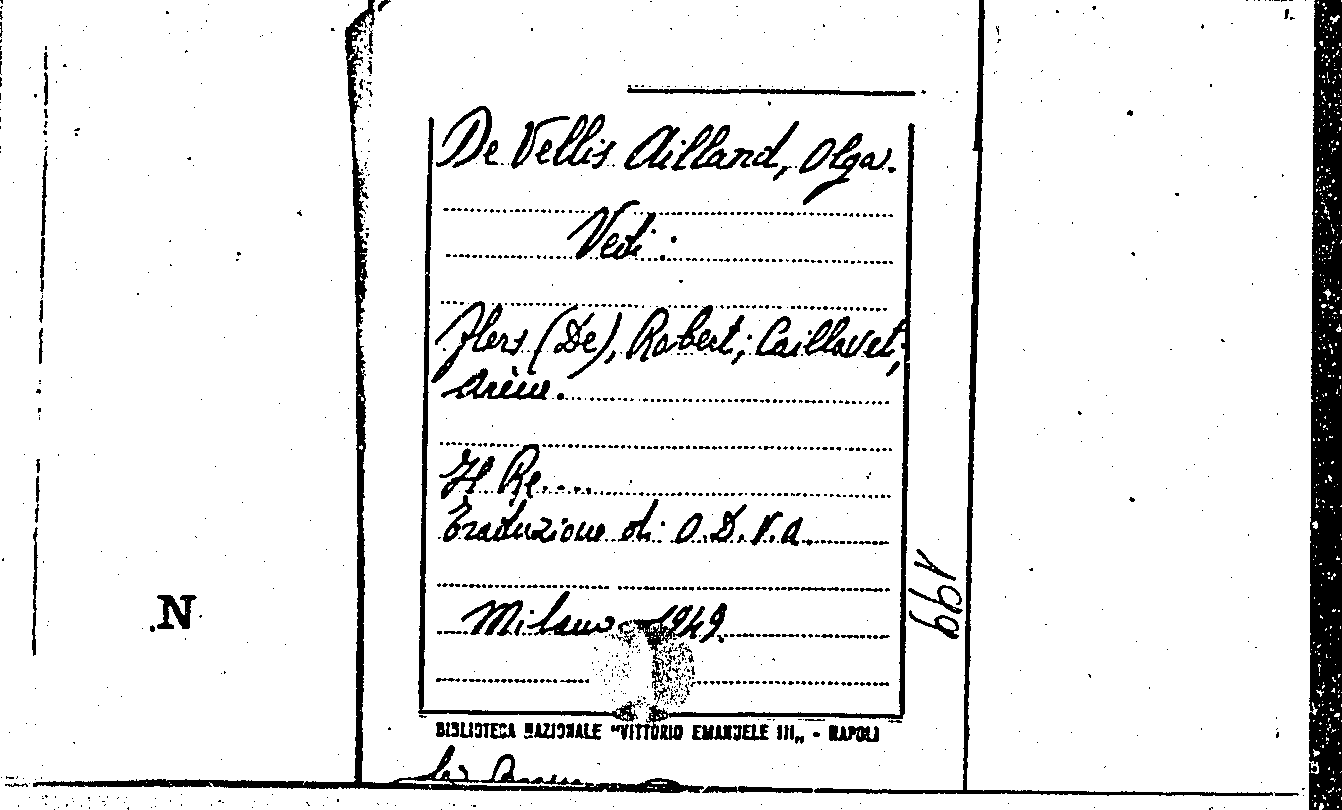 De Vellis Ailland, Olga.
Vedi :
Flers (De), Robert; Caillavet;
Arène.
Il Re....
Traduzione di O.D.V.A.
Milano - 1949.
199
N
BIBLIOTECA NAZIONALE "VITTORIO EMANUELE III„ - NAPOLI